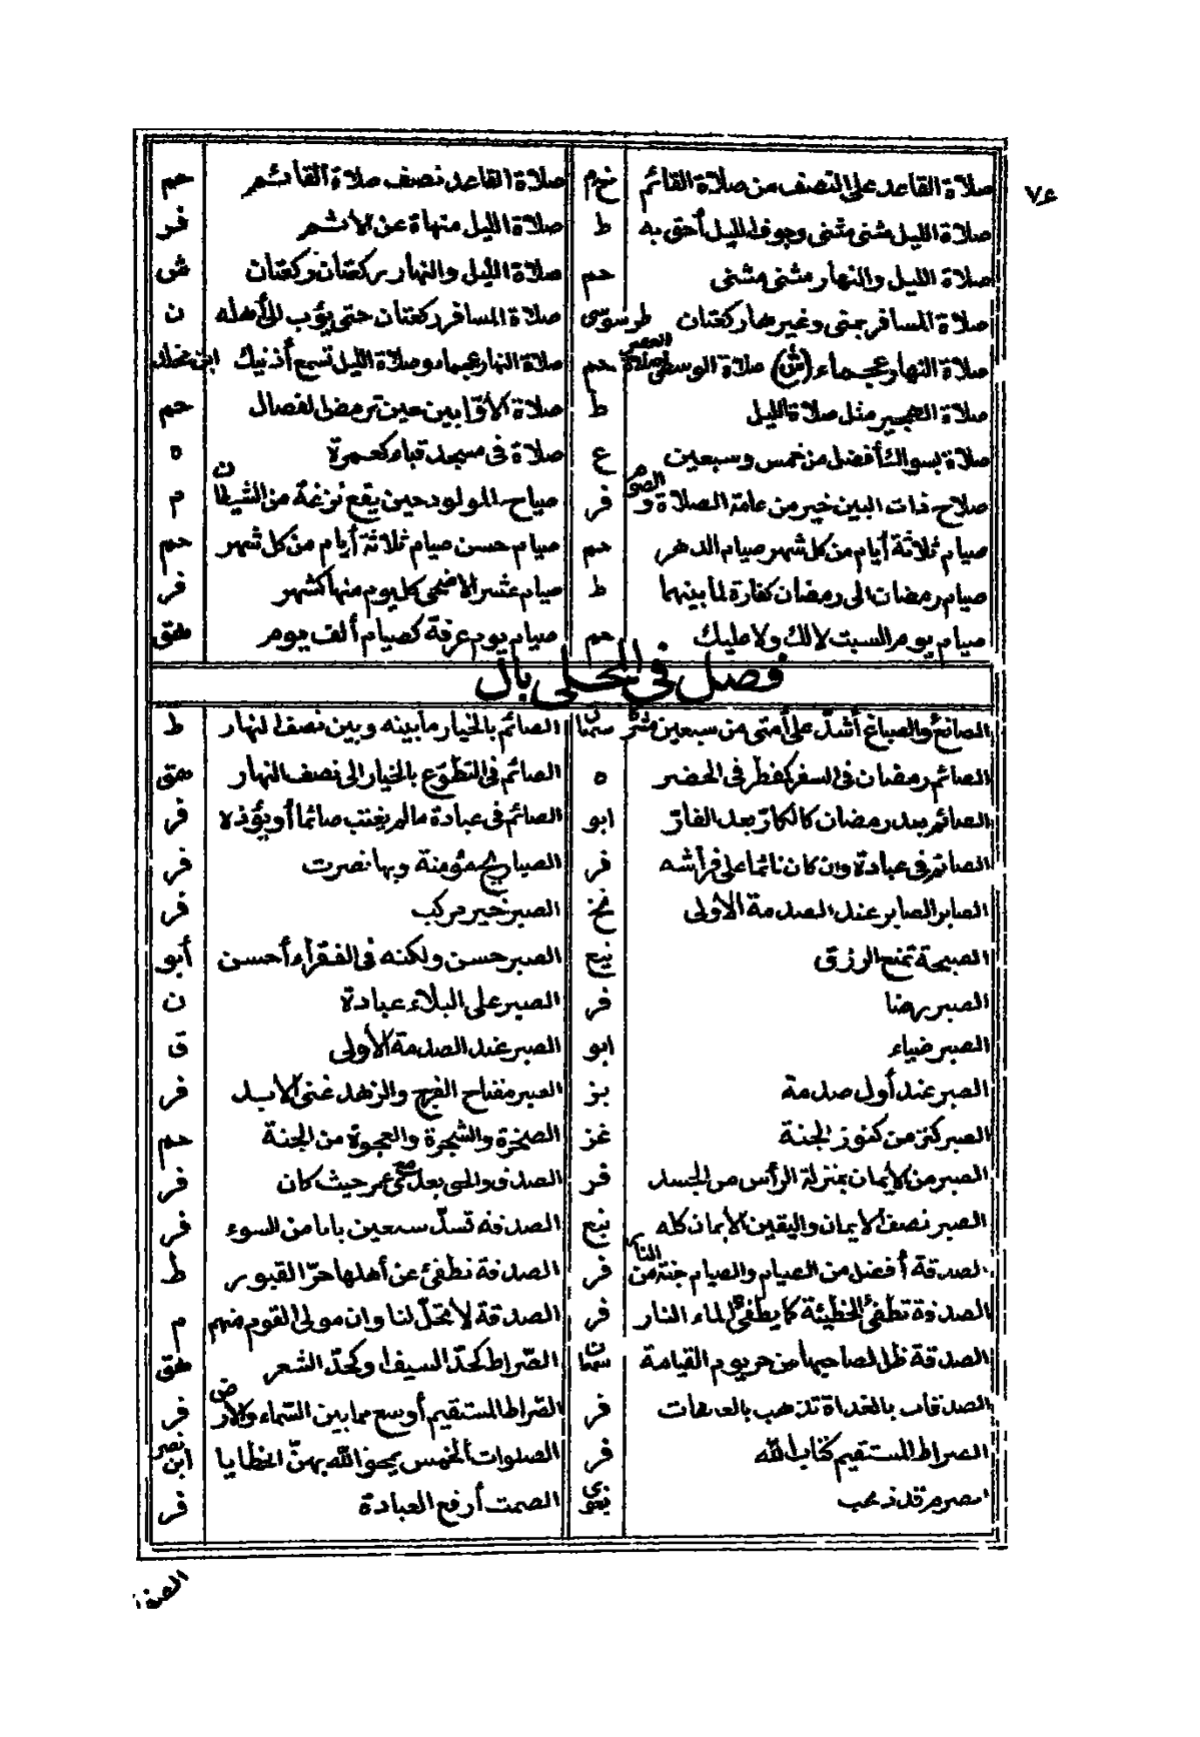 ٧٤
صلاة القاعد على النصف من صلاة القائم خم صلاة القاعد نصف صلاة القائم حم
صلاة الليل مثنى مثنى وجوف الليل أحق به ط صلاة الليل منهاة عن الاثم فر
صلاة الليل والنهار مثنى مثنى حم صلاة الليل والنهار ركعتان ركعتان ش
صلاة المسافر بمنى وغيرها ركعتان طرسوسى صلاة المسافر ركعتان حتى يؤب الى أهله ن
صلاة النهار عجماء (ش) صلاة الوسطى صلاة العصر حم صلاة النهار عجماء وصلاة الليل تسمع أذنيك ابن
صلاة الهجير مثل صلاة الليل ط صلاة الأوّابين حين ترمض الفصال حم
صلاة بسواك أفضل من خمس وسبعين ع صلاة فى مسجد قباء كعمرة ه
صلاح ذات البين خير من عامة الصلاة والصوم فر صياح المولود حين يقع نزغة من الشيطان م
صيام ثلاثة أيام من كل شهر صيام الدهر حم صيام حسن صيام ثلاثة أيام من كل شهر حم
صيام رمضان الى رمضان كفارة لما بينهما ط صيام عشر الاضحى كل يوم منها كشهر فر
صيام يوم السبت لا لك ولا عليك حم صيام يوم عرفة كصيام ألف يوم هق
فصل فى المحلى بال
الصانع والصباغ أشدّ على أمتى من سبعين الصائم بالخيار ما بينه وبين نصف النهار ط
الصائم رمضان فى السفر كمفطر فى الحضر ه الصائم فى التطوّع بالخيار الى نصف النهار هق
الصائم بعد رمضان كالكارّ بعد الفارّ ابو الصائم فى عبادة مالم يغتب صائما أو يؤذه فر
الصائم فى عبادة وان كان نائما على فرأشه فر الصياح مؤمنة وبها نصرت فر
الصابر الصابر عند الصدمة الاولى تخ الصبر خير مركب فر
الصبحة تمنع الرزق نبع الصبر حسن ولكنه فى الفقرأء أحسن أبو
الصبر رضا فر الصبر على البلاء عبادة ن
الصبر ضياء ابو الصبر عند الصدمة الأولى ق
الصبر عند أول صدمة بز الصبر مفتاح الفرج والزهد غنى الابد فر
الصبر كنز من كنوز الجنة غز الصخرة والشجرة والعجوة من الجنة حم
الصبر من الأيمان بمنزلة الرأس من الجسد فر الصدق والحق بعدى مع عمر حيث كان فر
الصبر نصف الايمان واليقين الايمان كله نبع الصدقة تسدّ سبعين بابا من السوء فر
الصدقة أفضل من الصيام والصيام جنة من النار فر الصدقة تطفئ عن أهلها حرّ القبور ط
الصدقة تطفئ الخطيئة كما يطفئ الماء النار فر الصدقة لا تحلّ لنا وان مولى القوم منهم م
الصدقة ظل لصاحبها من حر يوم القيامة الصّراط كحدّ السيف او كحدّ الشعر هق
الصدقات بالغداة تذهب بالعاهات فر الصّراط المستقيم أوسع مما بين السّماء والأرض فر
الصراط المستقيم كتاب الله فر الصلوات الخمس يمحو الله بهنّ الخطايا ابن نصر
الصرم قد ذهب بغوى الصمت أرفع العبادة فر